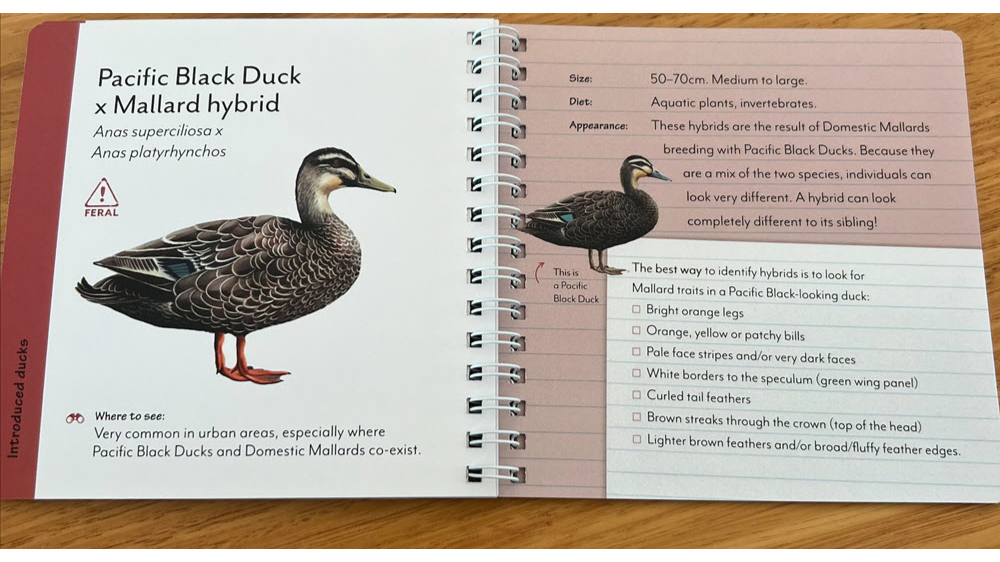 Pacific Black Duck
x Mallard hybrid
Anas superciliosa x
Anas platyrhynchos
FERAL
Where to see:
Very common in urban areas, especially where
Pacific Black Ducks and Domestic Mallards co-exist.
Introduced ducks
Size: 50–70cm. Medium to large.
Diet: Aquatic plants, invertebrates.
Appearance: These hybrids are the result of Domestic Mallards
breeding with Pacific Black Ducks. Because they
are a mix of the two species, individuals can
look very different. A hybrid can look
completely different to its sibling!
This is
a Pacific
Black Duck
The best way to identify hybrids is to look for
Mallard traits in a Pacific Black-looking duck:
Bright orange legs
Orange, yellow or patchy bills
Pale face stripes and/or very dark faces
White borders to the speculum (green wing panel)
Curled tail feathers
Brown streaks through the crown (top of the head)
Lighter brown feathers and/or broad/fluffy feather edges.